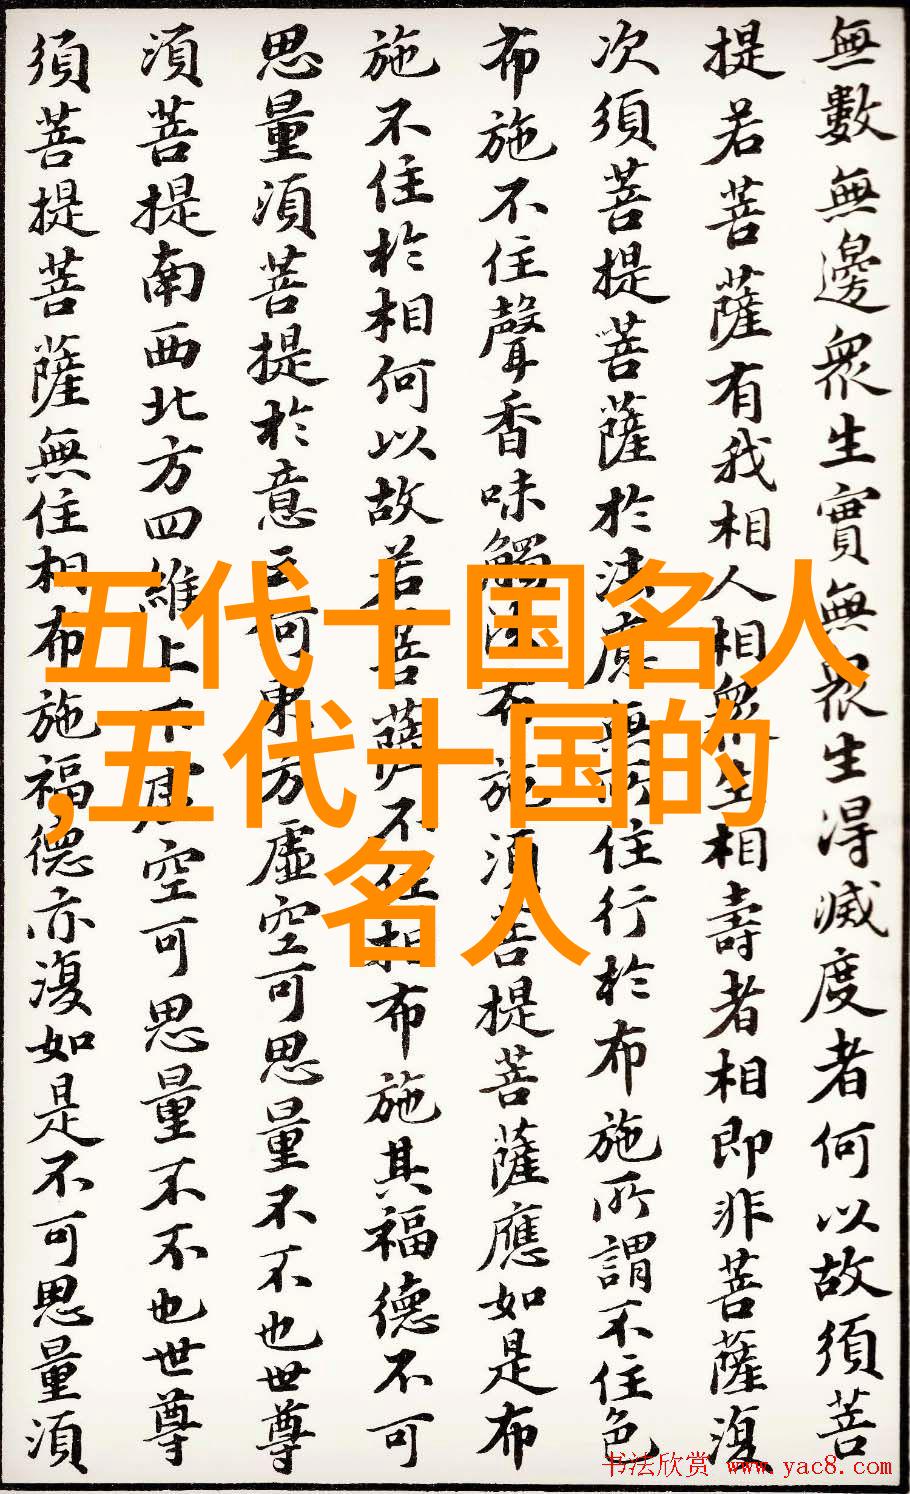 無數無邊眾生實無眾生得滅度者何以故須菩
提若菩薩有我相人相眾生相壽者相即非菩薩復
次須菩提菩薩於法應無所住行於布施所謂不住色
布施不住聲香味觸法布施須菩提菩薩應如是布
施不住於相何以故若菩薩不住相布施其福德不可
思量須菩提於意云何東方虛空可思量不不也世尊
須菩提南西北方四維上下虛空可思量不不也世尊
須菩提菩薩無住相布施福德亦復如是不可思量須
五代十国名人
,五代十国的
名人
书法欣赏 www.yac8.com